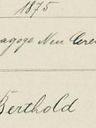 1875
agoge Neu
Berthold